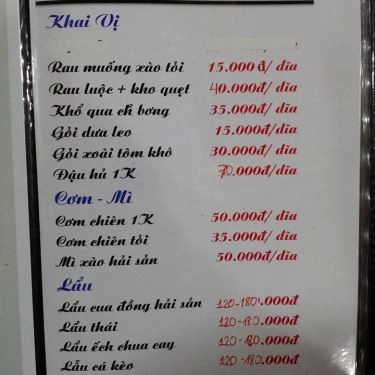 Khai Vị
Rau muống xào tỏi 15.000đ/ dĩa
Rau luộc + kho quẹt 40.000đ/ dĩa
Khổ qua ch bông 35.000đ/ dĩa
Gỏi dưa leo 15.000đ/ dĩa
Gỏi xoài tôm khô 30.000đ/ dĩa
Đậu hủ 1K 70.000đ/ dĩa
Cơm - Mì
Cơm chiên 1K 50.000đ/ dĩa
Cơm chiên tỏi 35.000đ/ dĩa
Mì xào hải sản 50.000đ/ dĩa
Lẩu
Lẩu cua đồng hải sản 120-180.000đ
Lẩu thái 120-180.000đ
Lẩu ếch chua cay 120-180.000đ
Lẩu cá kèo 120-180.000đ